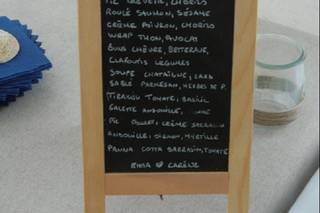 PIC CREVETTE, CHORIZO
ROULÉ SAUMON, SÉSAME
CRÈME POIVRON, CHORIZO
WRAP THON, AVOCAT
BUNS CHÈVRE, BETTERAVE,
CLAFOUTIS LÉGUMES
SOUPE CHATAÎGNE, LARD
SABLÉ PARMESAN, HERBES DE P.
TIRAMISU TOMATE, BASILIC
GALETTE ANDOUILLE,
PIC CRÈME SARRASIN
ANDOUILLE, OIGNON, MYRTILLE
PANNA COTTA SARRASIN, TOMATE